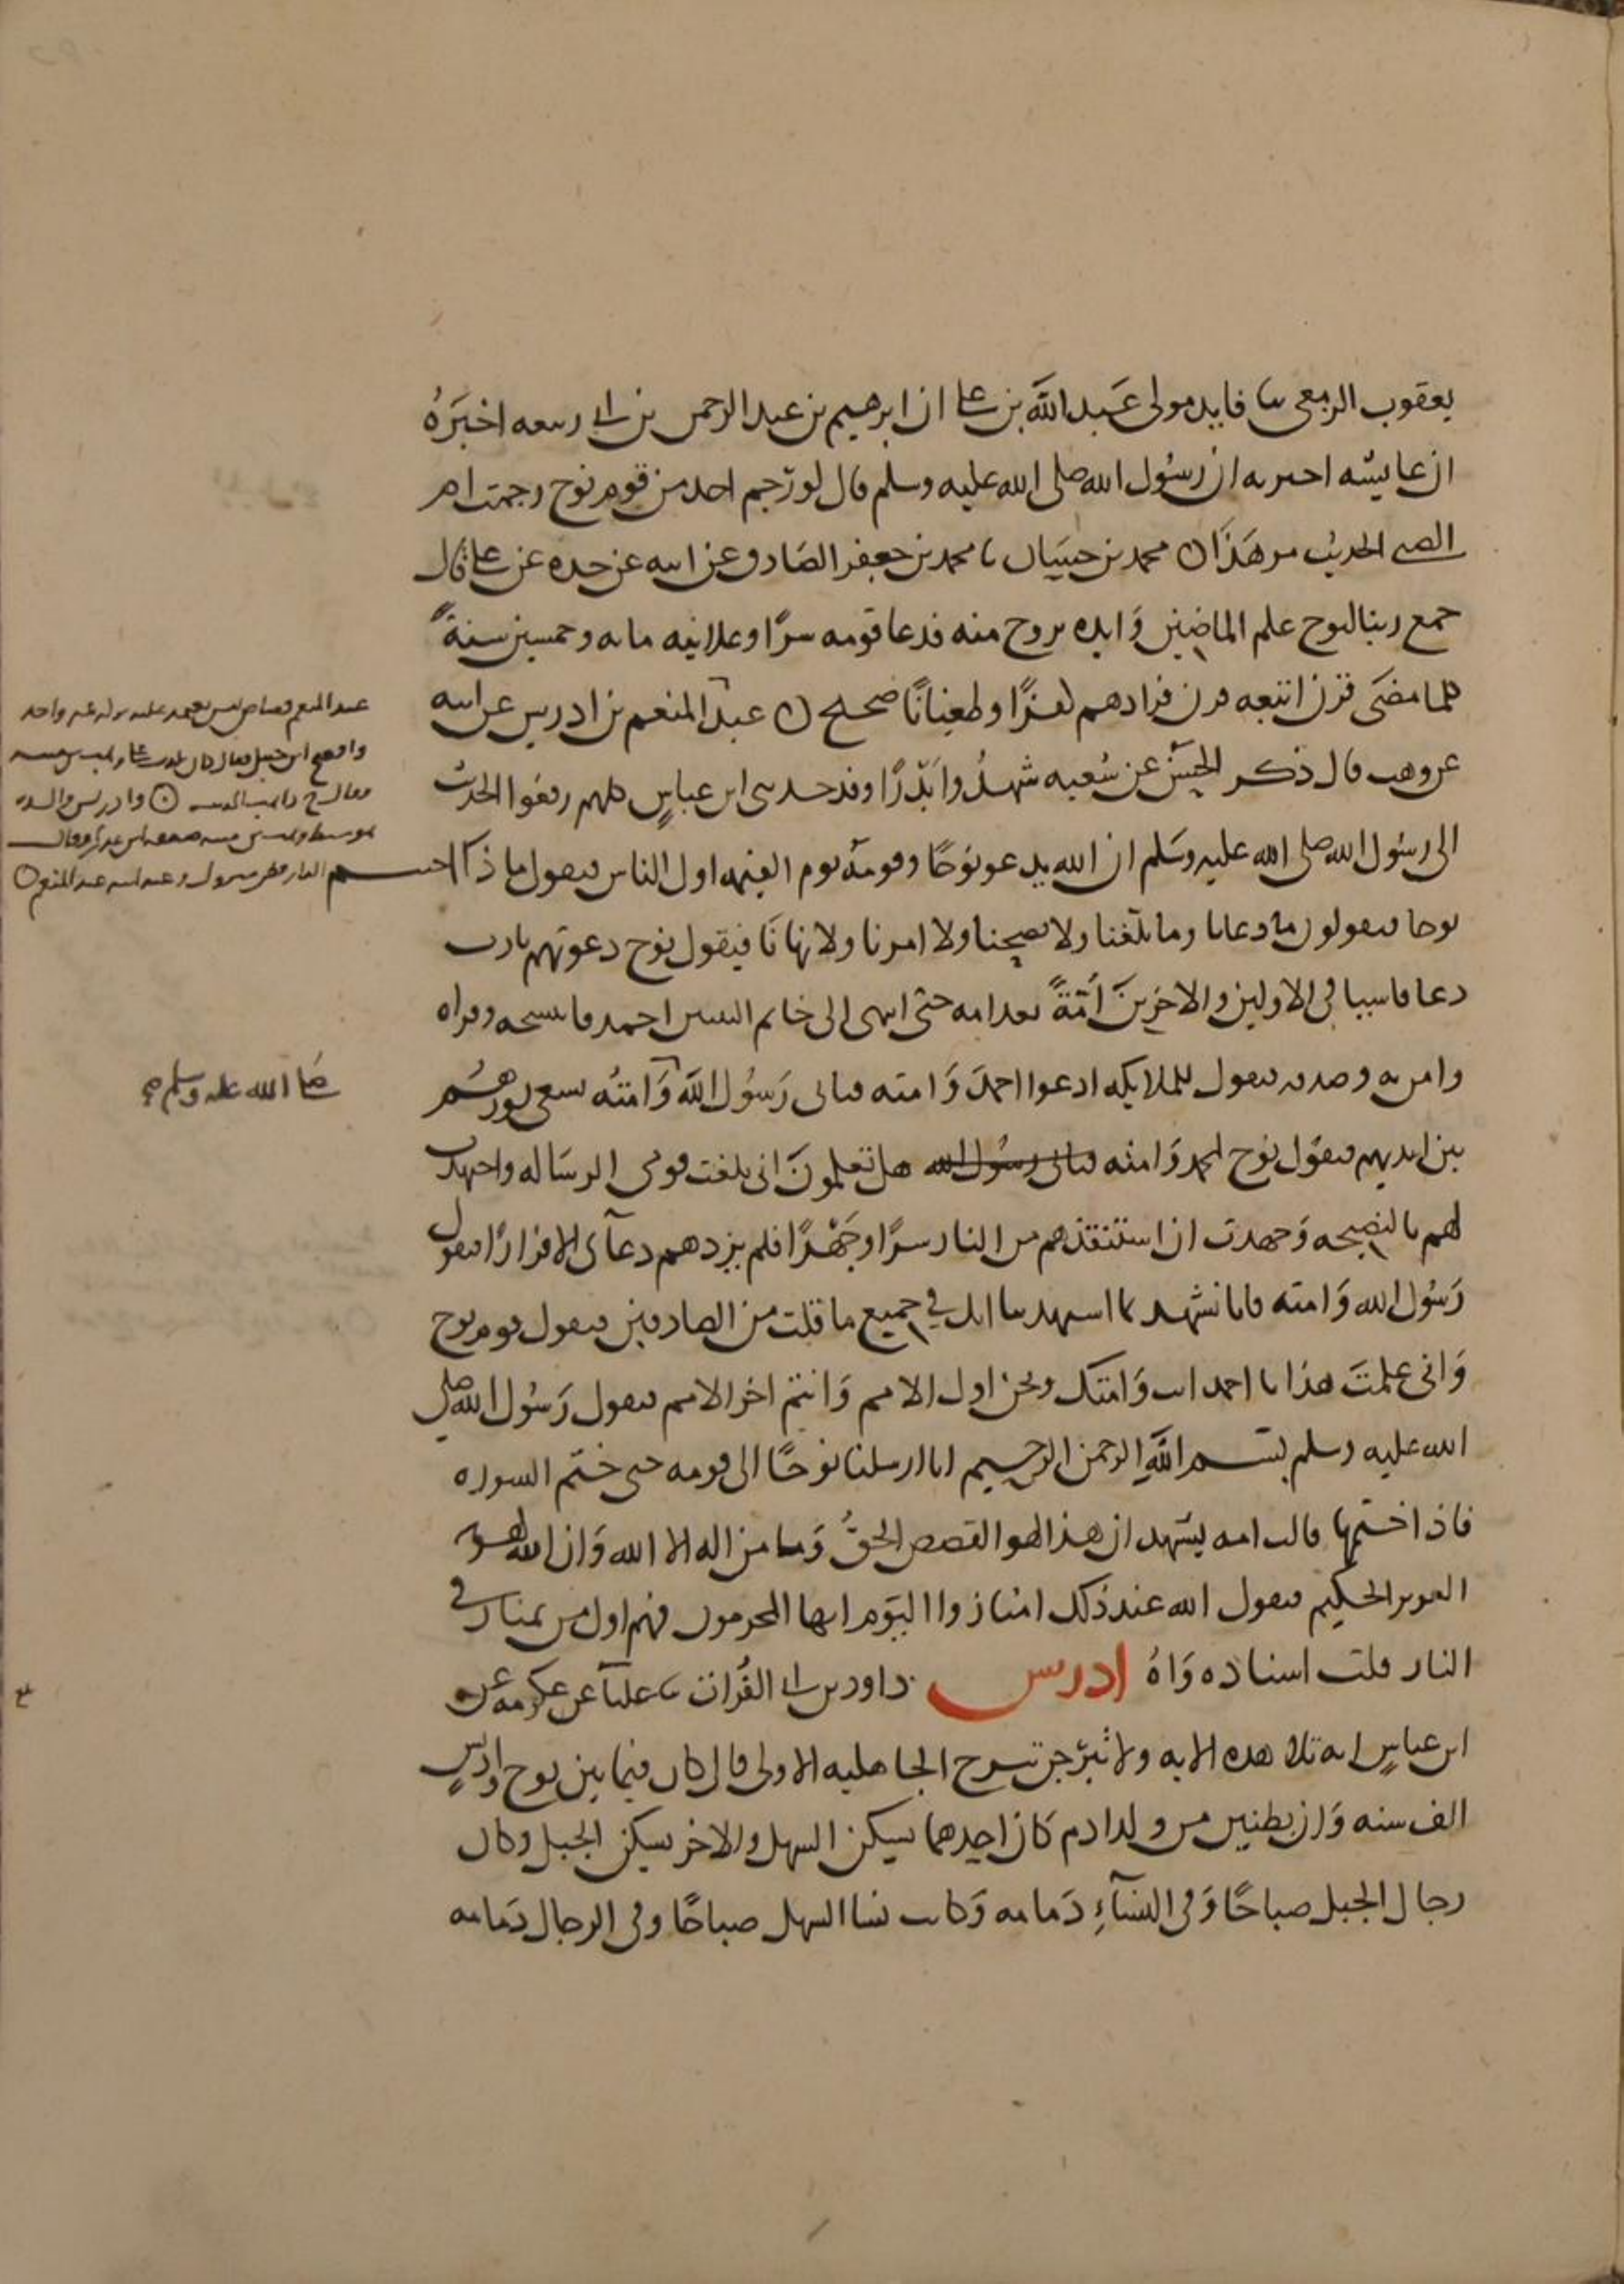 يعقوب الزمعي سا فايد مولى عبد الله بن علي ان ابرهيم بن عبد الرحمن بن ابي ربيعه اخبره
ان عايشه اخبرته ان رسول الله صلى الله عليه وسلم قال لو رحم احد من قوم نوح رحمت ام
الصبي الحديث مر هذا ن محمد بن حسان نا محمد بن جعفر الصادق عن ابيه عن جده عن علي قال
جمع ربنا لنوح علم الماضين وايده بروح منه فدعا قومه سرا وعلانيه مايه وخمسين سنة
كلما مضى قرن اتبعه قرن فزادهم كفرا وطغيانا صحيح ن عبد المنعم بن ادريس عن ابيه
عن وهب قال ذكر الحسن عن سبعه شهدوا بدرا وقد حدثني ابن عباس كلهم رفعوا الحديث
الى رسول الله صلى الله عليه وسلم ان الله يدعو نوحا وقومه يوم القيمه اول الناس فيقول ماذا احبتم
نوحا فيقولون ما دعانا وما بلغنا ولا نصحنا ولا امرنا ولا نهانا فيقول نوح دعوتهم يارب
دعا فاشيا في الاولين والاخرين امة بعد امه حتى انتهى الى خاتم النبيين احمد فانتسخه وقراه
وامن به وصدقه فيقول للملايكه ادعوا احمد وامته فياتي رسول الله وامته يسعى نورهم
بين ايديهم فيقول نوح لمحمد وامته فياتي رسول الله هل تعلمون اني بلغت قومي الرساله واجتهدت
لهم بالنصيحه وجهدت ان استنقذهم من النار سرا وجهرا فلم يزدهم دعآى الا فرارا فيقول
رسول الله وامته فانا نشهد بما اشهدتنا انك في جميع ما قلت من الصادقين فيقول قوم نوح
وانى علمت هذا يا احمد انت وامتك ونحن اول الامم وانتم اخر الامم فيقول رسول الله صلى
الله عليه وسلم بسم الله الرحمن الرحيم انا ارسلنا نوحا الى قومه حتى ختم السوره
فاذا ختمها قالت امته يشهد ان هذا لهو القصص الحق وما من اله الا الله وان الله لهو
العزيز الحكيم فيقول الله عند ذلك امتازوا اليوم ايها المجرمون فهم اول من يمتاز في
النار قلت اسناده واه ادريس داود بن ابي الفرات نا علبآ عن عكرمه عن
ابن عباس انه تلا هذه الايه ولا تبرجن تبرج الجاهليه الاولى قال كان فيما بين نوح وادريس
الف سنه وان بطنين من ولد ادم كان احدهما يسكن السهل والاخر يسكن الجبل وكان
رجال الجبل صباحا وفي النسآء دمامه وكانت نسا السهل صباحا وفي الرجال دمامه
صلى الله عليه وسلم صح